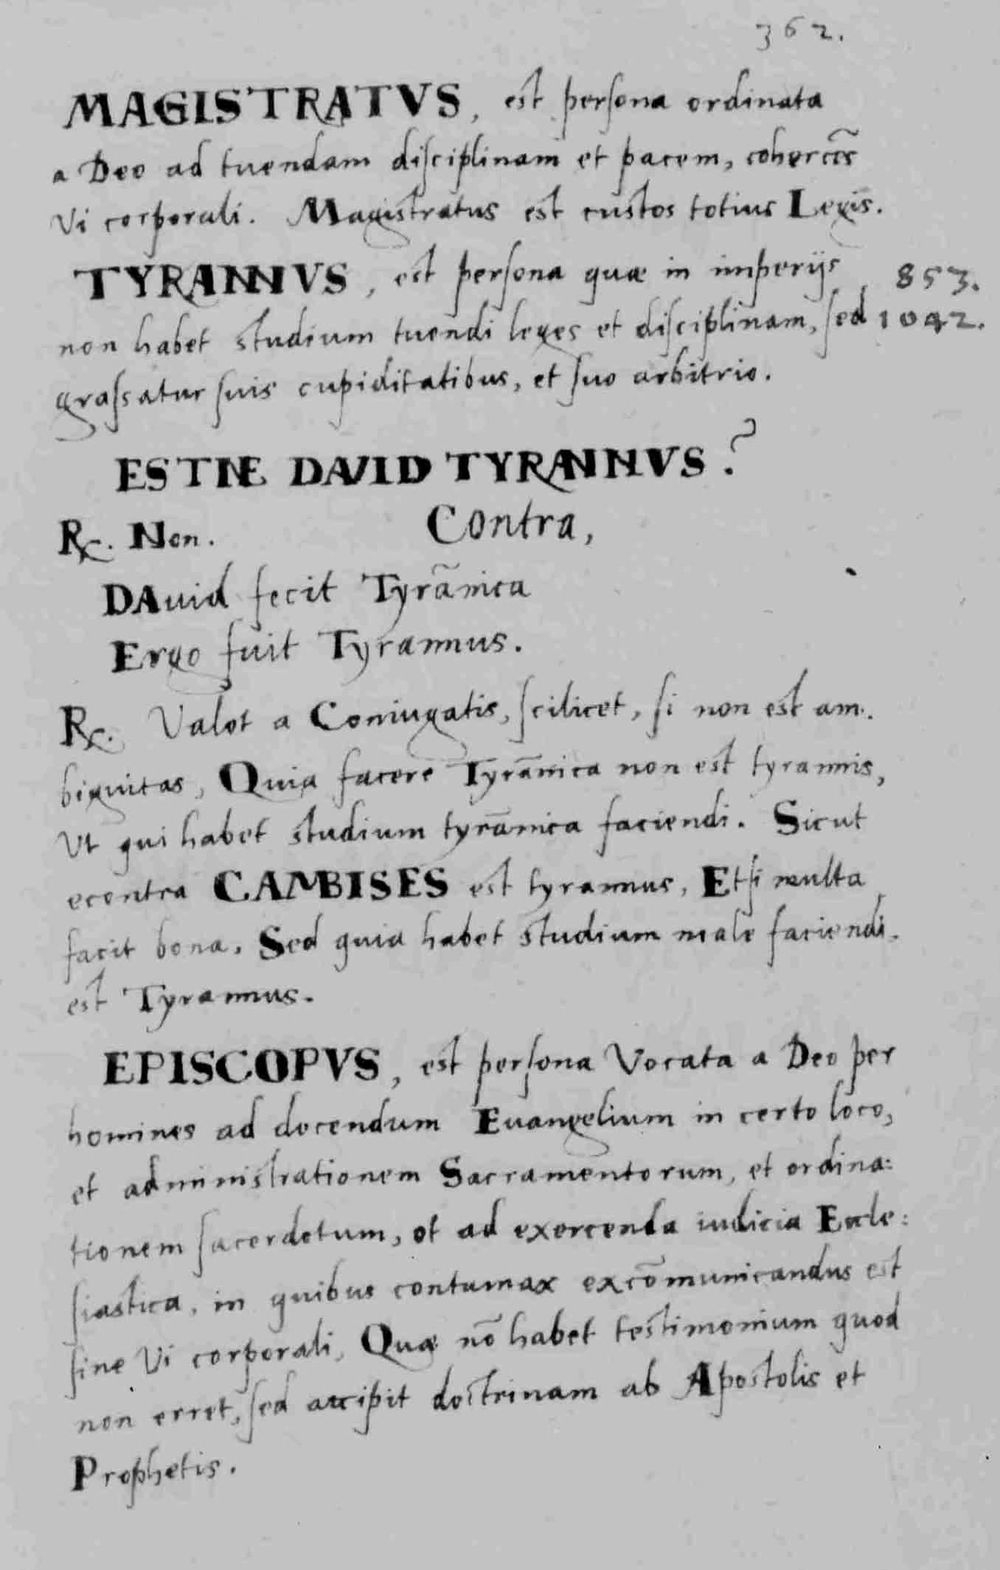 362.
MAGISTRATVS, est persona ordinata
a Deo ad tuendam disciplinam et pacem, cohercēs
Vi corporali. Magistratus est custos totius Legis.
TYRANNVS, est persona quæ in imperijs 853.
non habet studium tuendi leges et disciplinam, sed 1042.
grassatur suis cupiditatibus, et suo arbitrio.
ESTNE DAVID TYRANNVS?
℞. Non. Contra,
DAuid fecit Tyrānica
Ergo fuit Tyrannus.
℞. Valet a Coniugatis, scilicet, si non est am:
biguitas, Quia facere Tyrānica non est tyrannis,
Vt qui habet studium tyrānica faciendi. Sicut
econtra CAMBISES est tyrannus, Etsi multa
facit bona. Sed quia habet studium male faciendi.
est Tyrannus.
EPISCOPVS, est persona Vocata a Deo per
homines ad docendum Euangelium in certo loco,
et administrationem Sacramentorum, et ordina:
tionem sacerdotum, et ad exercenda iudicia Eccle:
siastica, in quibus contumax excōmunicandus est
sine Vi corporali, Quæ nō habet testimonium quod
non erret, sed accipit doctrinam ab Apostolis et
Prophetis.